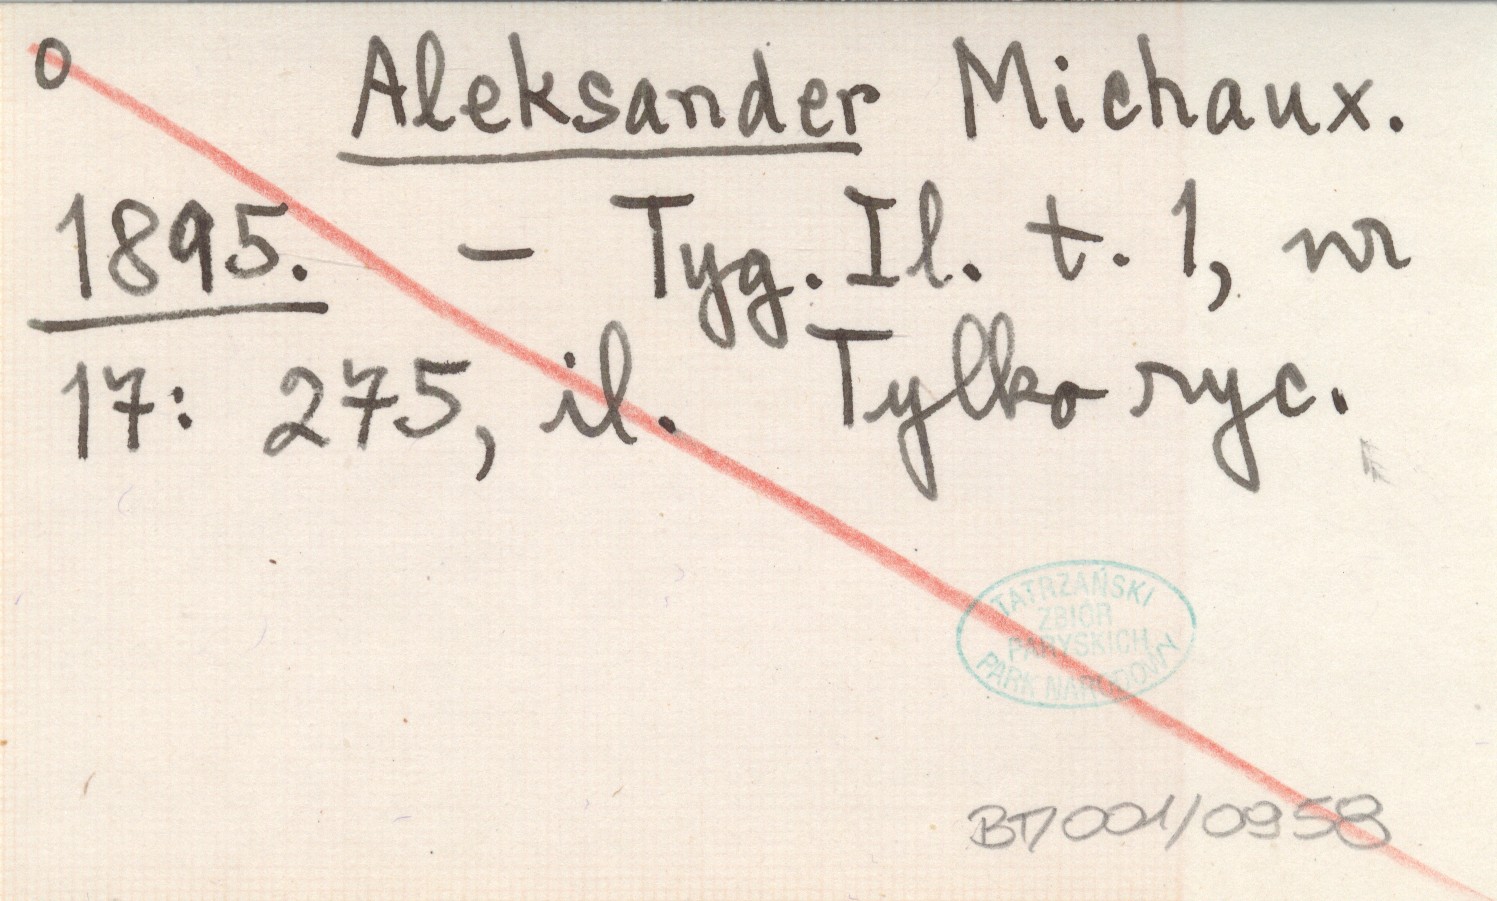 o Aleksander Michaux.
1895. – Tyg. Il. t. 1, nr
17: 275, il. Tylko ryc.
TATRZAŃSKI
ZBIÓR
PARYSKICH
PARK NARODOWY
BT/001/0958